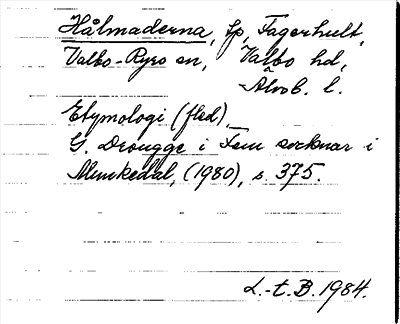 Hålmaderna, sp. Fagerhult,
Valbo-Ryrs sn, Valbo hd,
Älvsb. l.
Etymologi (fled),
G. Drougge i Fem socknar i
Munkedal, (1980), s. 375.
L.-t. B. 1984.